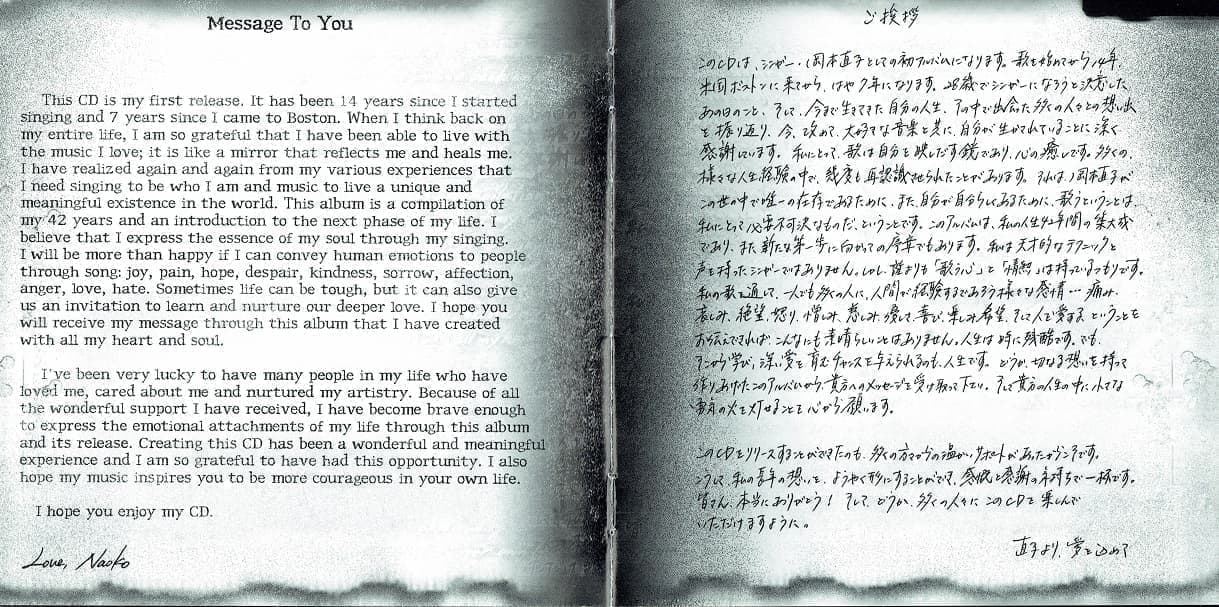 Message To You
This CD is my first release. It has been 14 years since I started
singing and 7 years since I came to Boston. When I think back on
my entire life, I am so grateful that I have been able to live with
the music I love; it is like a mirror that reflects me and heals me.
I have realized again and again from my various experiences that
I need singing to be who I am and music to live a unique and
meaningful existence in the world. This album is a compilation of
my 42 years and an introduction to the next phase of my life. I
believe that I express the essence of my soul through my singing.
I will be more than happy if I can convey human emotions to people
through song: joy, pain, hope, despair, kindness, sorrow, affection,
anger, love, hate. Sometimes life can be tough, but it can also give
us an invitation to learn and nurture our deeper love. I hope you
will receive my message through this album that I have created
with all my heart and soul.
I've been very lucky to have many people in my life who have
loved me, cared about me and nurtured my artistry. Because of all
the wonderful support I have received, I have become brave enough
to express the emotional attachments of my life through this album
and its release. Creating this CD has been a wonderful and meaningful
experience and I am so grateful to have had this opportunity. I also
hope my music inspires you to be more courageous in your own life.
I hope you enjoy my CD.
Love, Naoko
ご挨拶
このCDは、シンガー・岡本直子としての初アルバムになります。歌を始めてから14年、
米国ボストンに来てから、はや7年になります。28歳でシンガーになろうと決意した
あの日のこと、そして、今まで生きてきた自分の人生、その中で出会た多くの人々との想い出
を振り返り、今、改めて、大好きな音楽と共に、自分が生かされていることに深く
感謝しています。私にとって、歌は自分を映しだす鏡であり、心の癒しです。多くの、
様々な人生経験の中で、幾度も再認識させられたことがあります。それは、岡本直子が
この世の中で唯一の存在であるために、また、自分が自分らしくあるために、歌うということは、
私にとって必要不可決なものだ、ということです。このアルバムは、私の人生42年間の集大成
であり、また新たな第一歩に向かっての序章でもあります。私は天才的なテクニックと
声を持ったシンガーではありません。しかし、誰よりも「歌う心」と「情熱」は持っているつもりです。
私の歌を通して、一人でも多くの人に、人間が経験するであろう様々な感情…痛み、
哀しみ、絶望、怒り、憎しみ、慈しみ、優しさ、喜び、楽しみ、希望、そして人を愛する ということを
お伝えできれば、こんなにも素晴らしいことはありません。人生は時に残酷です。でも、
そこから学び、深い愛を育むチャンスを与えられるのも、人生です。どうか、切なる想いを持って
作りあげたこのアルバムから、貴方へのメッセージを受け取って下さい。そして貴方の人生の中に、小さな
勇気の火を灯せることを心から願います。
このCDをリリースすることができたのも、多くの方々からの温かいサポートがあったからこそです。
こうして、私の長年の想いを、ようやく形にすることができて、感慨と感謝の気持ちで一杯です。
皆さん、本当にありがとう! そして、どうか、多くの人々に このCDを楽しんで
いただけますように。
直子より、愛を込めて